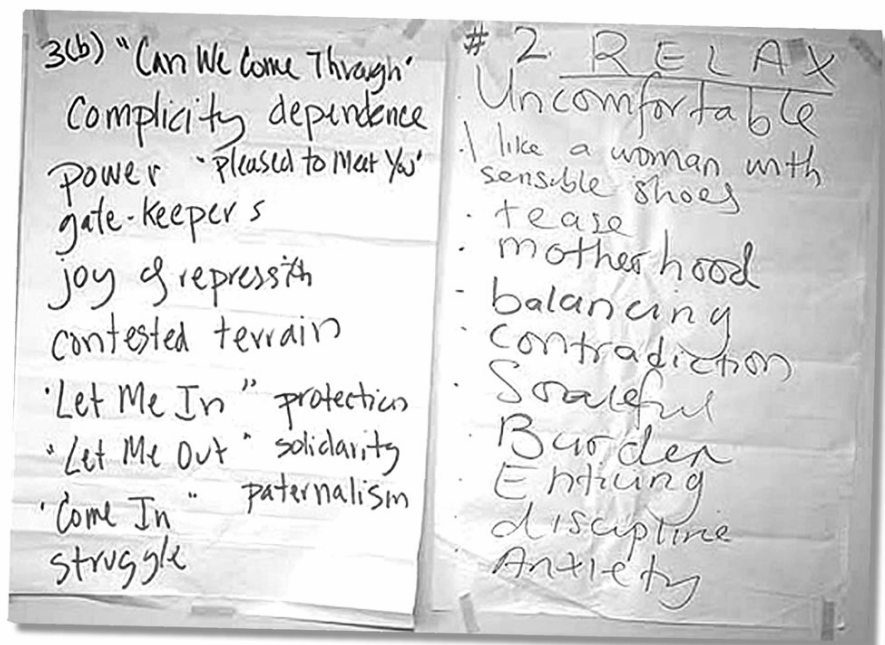 3(b) "Can We Come Through'
Complicity dependence
power 'Pleased to Meet You'
gate-keepers
joy of repression
contested terrain
'Let Me In" protection
"Let Me Out" solidarity
paternalism
'Come In"
struggle
# 2 RELAX
Uncomfortable
I like a woman with
sensible shoes
· tease
· motherhood
- balancing
· Contradiction
·
· Burden
· Enticing
· discipline
· Anxiety